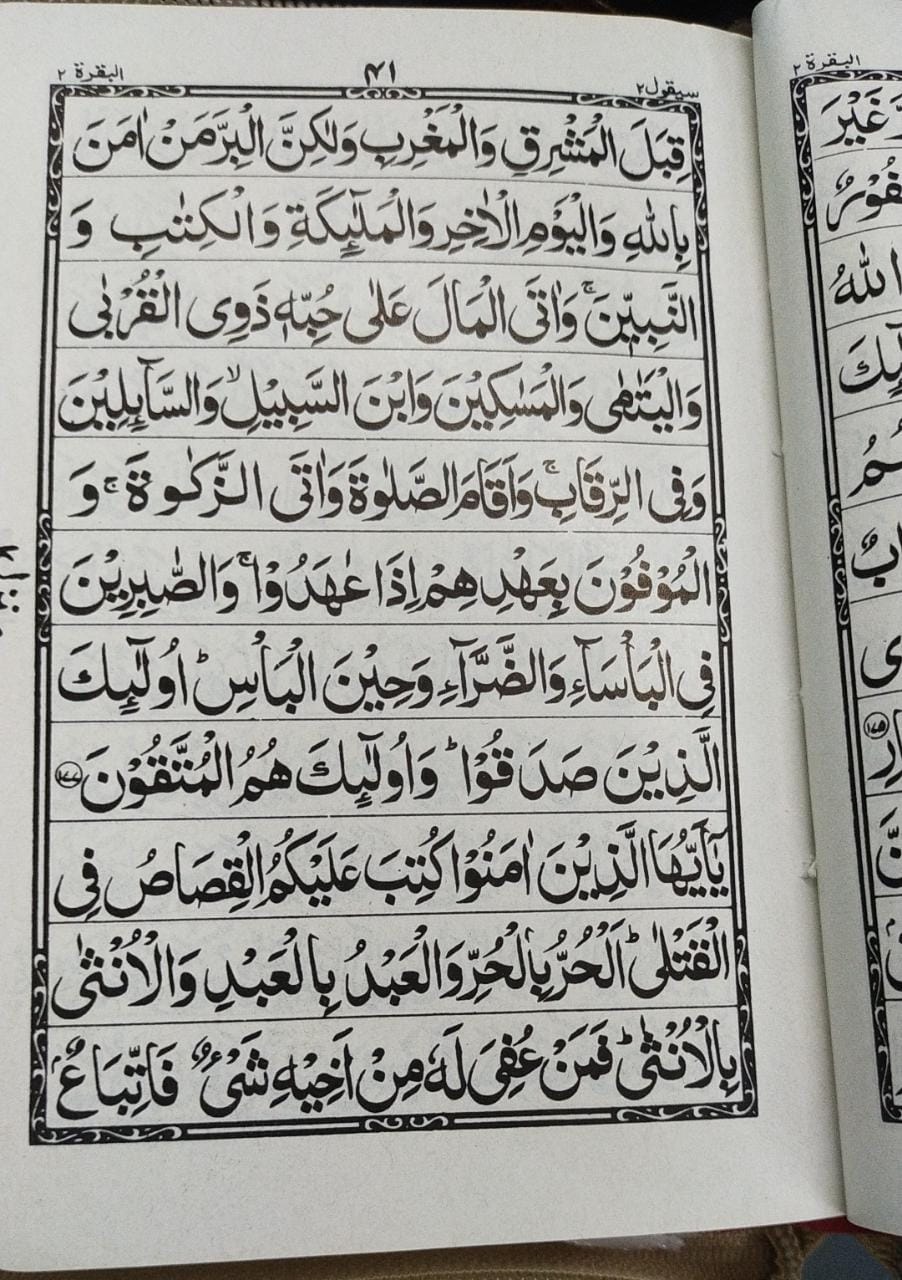 البقرة ٢
٤١
سيقول ٢
قِبَلَ الْمَشْرِقِ وَالْمَغْرِبِ وَلٰكِنَّ الْبِرَّ مَنْ اٰمَنَ
بِاللّٰهِ وَالْيَوْمِ الْاٰخِرِ وَالْمَلٰٓئِكَةِ وَالْكِتٰبِ وَ
النَّبِيّٖنَ ۚ وَاٰتَى الْمَالَ عَلٰى حُبِّهٖ ذَوِى الْقُرْبٰى
وَالْيَتٰمٰى وَالْمَسٰكِيْنَ وَابْنَ السَّبِيْلِ ۙ وَالسَّآئِلِيْنَ
وَفِى الرِّقَابِ ۚ وَاَقَامَ الصَّلٰوةَ وَاٰتَى الزَّكٰوةَ ۚ وَ
الْمُوْفُوْنَ بِعَهْدِهِمْ اِذَا عٰهَدُوْا ۚ وَالصّٰبِرِيْنَ
فِى الْبَاْسَآءِ وَالضَّرَّآءِ وَحِيْنَ الْبَاْسِ ؕ اُولٰٓئِكَ
الَّذِيْنَ صَدَقُوْا ؕ وَاُولٰٓئِكَ هُمُ الْمُتَّقُوْنَ ١٧٧
يٰٓاَيُّهَا الَّذِيْنَ اٰمَنُوْا كُتِبَ عَلَيْكُمُ الْقِصَاصُ فِى
الْقَتْلٰى ؕ اَلْحُرُّ بِالْحُرِّ وَالْعَبْدُ بِالْعَبْدِ وَالْاُنْثٰى
بِالْاُنْثٰى ؕ فَمَنْ عُفِىَ لَهٗ مِنْ اَخِيْهِ شَىْءٌ فَاتِّبَاعٌۢ
البقرة ٢
غَيْرَ
اللّٰهُ
١٧٥